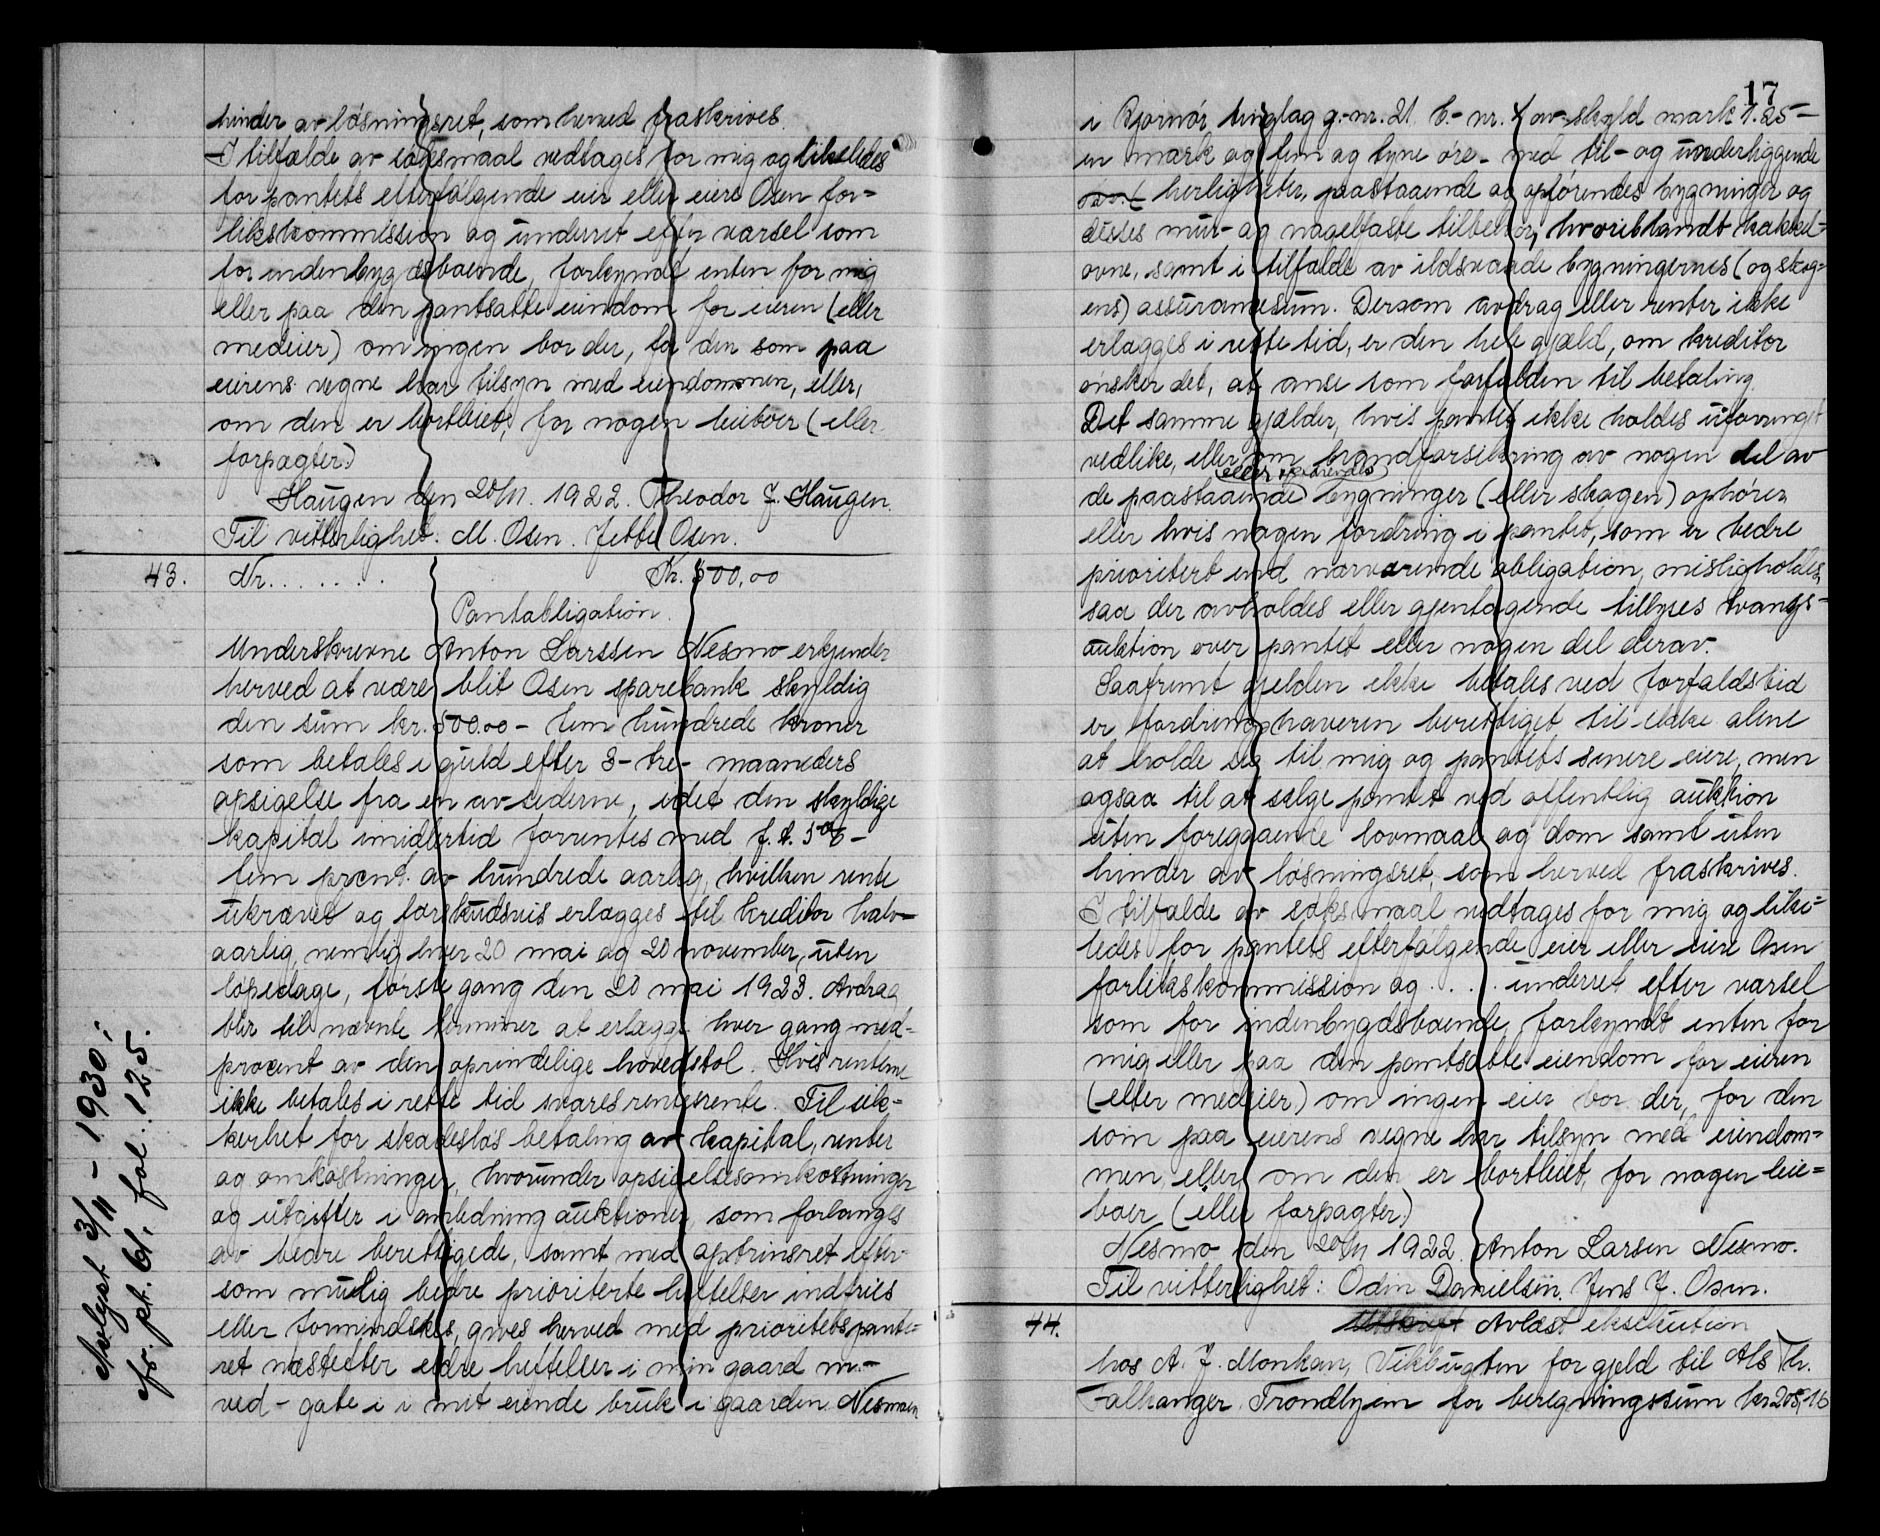 hinder av løsningsret, som herved fraskrives.
I tilfælde av søksmaal vedtages for mig og likeledes
for pantets efterfølgende eier eller eiere Osen for-
likskommission og underret efter varsel som
for indenbygdsboende, forkyndt enten for mig
eller paa den pantsatte eiendom for eieren (eller
medeier) om ingen bor der, for den som paa
eierens vegne har tilsyn med eiendommen, eller,
om den er bortleiet, for nogen leieboer (eller
forpagter)
Haugen den 20/11. 1922. Theodor J. Haugen.
Til vitterlighet: M. Osen. Jette Osen.
43. Nr. . . . . . . Kr. 500,00
Pantobligation.
Underskrevne Anton Larssen Nesmo erkjender
herved at være blit Osen sparebank skyldig
den sum kr. 500.00 - fem hundrede kroner
som betales i guld efter 3 - tre - maaneders
opsigelse fra en av siderne, idet den skyldige
kapital imidlertid forrentes med f. t. 5% -
fem procent av hundrede aarlig, hvilken rente
ukrævet og forskudsvis erlægges til kreditor halv-
aarlig, nemlig hver 20 mai og 20 november, uten
løpedage, første gang den 20 mai 1923. Avdrag
blir til nævnte terminer at erlægge hver gang med -
procent av den oprindelige hovedstol. Hvis renterne
ikke betales i rette tid svares rentesrente. Til sik-
kerhet for skadesløs betaling av kapital, renter
og omkostninger, hvorunder opsigelsesomkostninger
og utgifter i anledning auktioner, som forlanges
av bedre berettigede, samt med optrinsret efter-
som mulig bedre prioriterte heftelser indfries
eller formindskes, gives herved med prioritets pante-
ret næstefter eldre heftelser i min gaard nr. -
ved - gate i i mit eiende bruk i gaarden Nesmoen
Avlyst 3/11 - 1930;
efr. pt. bl. fol. 125.
17
i Bjørnør tinglag g.-nr. 21 b.-nr. 4 av skyld mark 1.25 -
en mark og fem og tyve øre - med til- og underliggende
herligheter, paastaaende og opførendes bygninger og
disses mur- og nagelfaste tilbehør, hvoriblandt kakkel-
ovne, samt i tilfælde av ildsvaade bygningernes (og skog-
ens) assurancesum. Dersom avdrag eller renter ikke
erlægges i rette tid, er den hele gjæld, om kreditor
ønsker det, at anse som forfalden til betaling.
Det samme gjælder, hvis pantet ikke holdes uforringet
vedlike, eller om brandforsikring av nogen del av
(eller opførendes)
de paastaaende bygninger (eller skogen) ophører
eller hvis nogen fordring i pantet, som er bedre
prioritert end nærværende obligation, misligholdes,
saa der avholdes eller gjentagende tillyses tvangs-
auktion over pantet eller nogen del derav.
Saafremt gjelden ikke betales ved forfaldstid
er fordringshaveren berettiget til ikke alene
at holde sig til mig og pantets senere eiere, men
ogsaa til at sælge pantet ved offentlig auktion
uten foregaaende lovmaal og dom samt uten
hinder av løsningsret, som herved fraskrives.
I tilfælde av søksmaal vedtages for mig og like-
ledes for pantets efterfølgende eier eller eiere Osen
forlikskommission og . . . . underret efter varsel
som for indenbygdsboende, forkyndt enten for
mig eller paa den pantsatte eiendom for eieren
(eller medeier) om ingen eier bor der, for den
som paa eierens vegne har tilsyn med eiendom-
men, eller om den er bortleiet, for nogen leie-
boer (eller forpagter)
Nesmo den 20/11 1922. Anton Larsen Nesmo.
Til vitterlighet: Odin Danielsen, Jens J. Osen.
44. Utskrift Avlæst eksekution
hos A. J. Monkan, Vikbugten for gjeld til A/s Th.
Falkanger Trondhjem for beregningssum kr 205,16